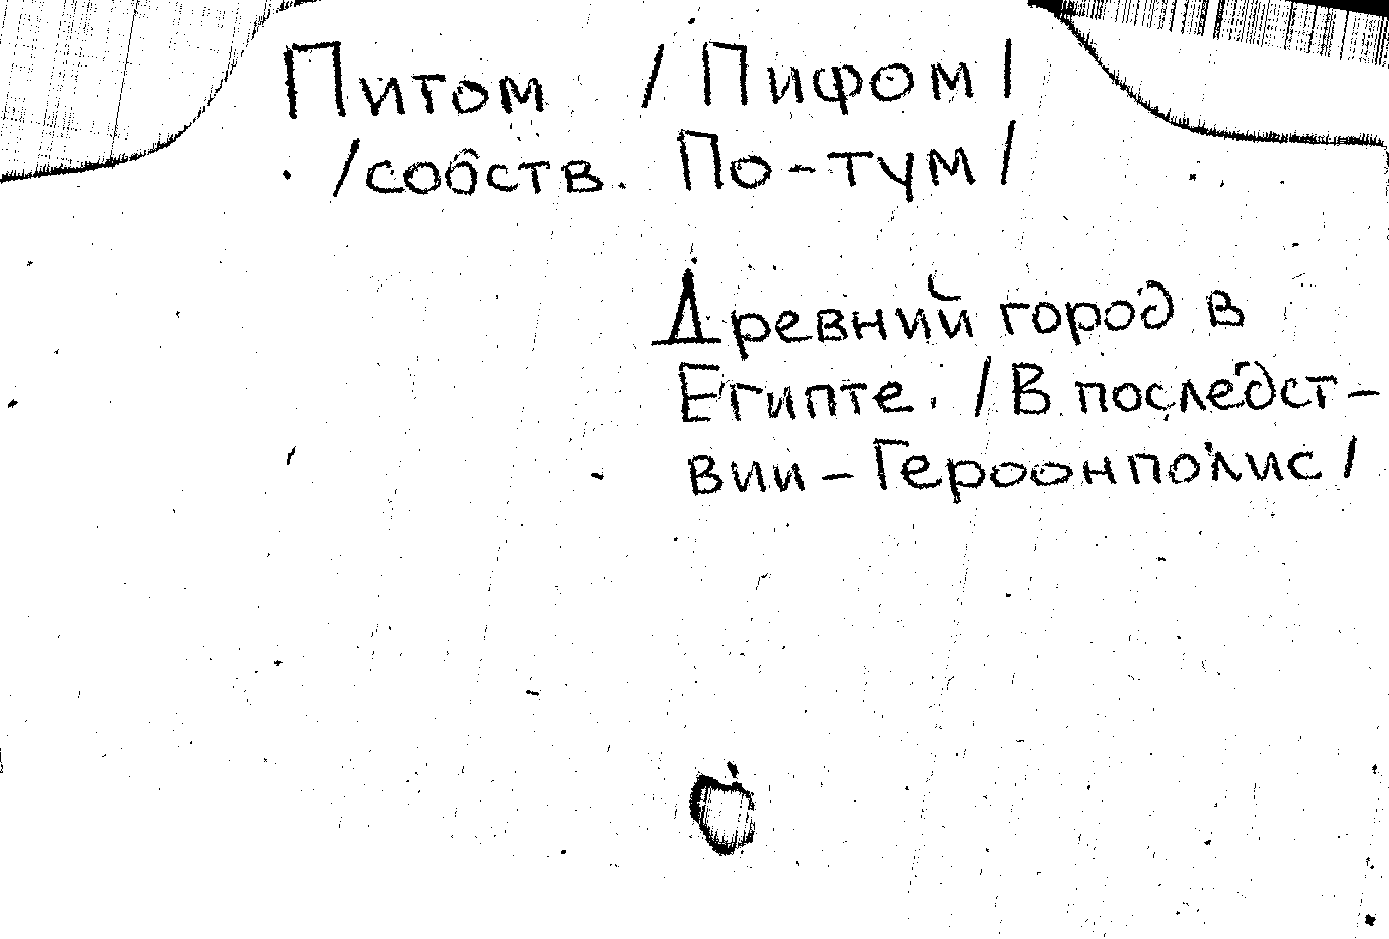 Питом / Пифом /
/собств. По-тум /
Древний город в
Египте. / В последст-
вии - Героонполис /